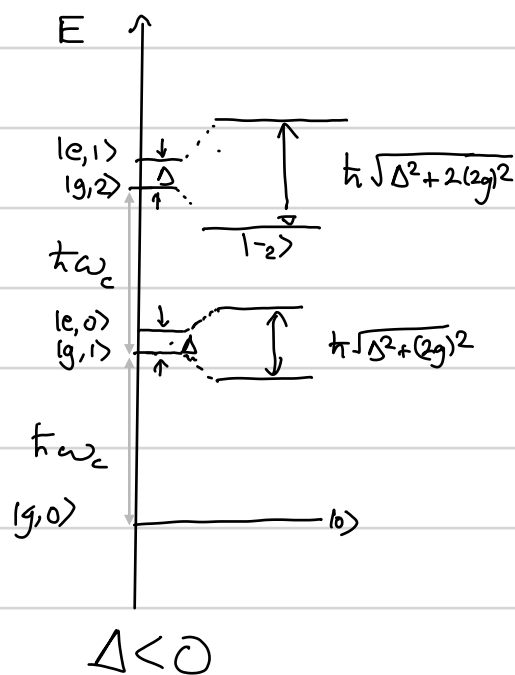 E
|e,1⟩
Δ
|g,2⟩
ħ√Δ²+2(2g)²
|-₂⟩
ħω_c
|e,0⟩
|g,1⟩
Δ
ħ√Δ²+(2g)²
ħω_c
|g,0⟩
|0⟩
Δ<0